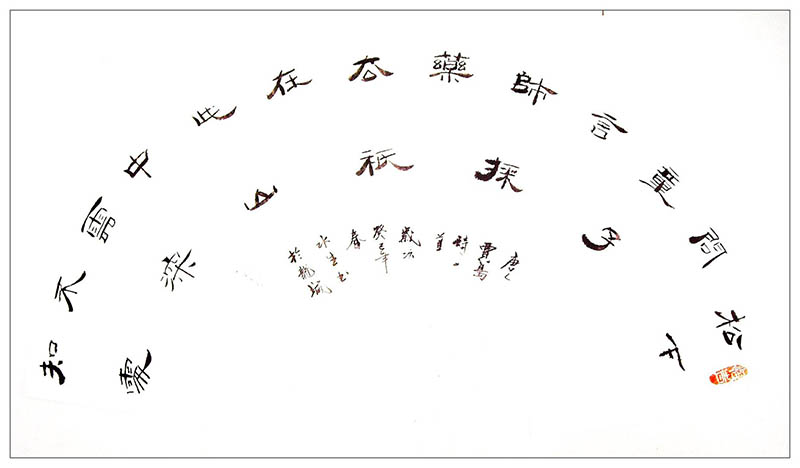 松下
問
童子
言
師採
藥
去祗
在
此山
中
雲深
不
知處
唐人
賈島
詩一
首
歲次
癸巳年
春
水生书
於龍城